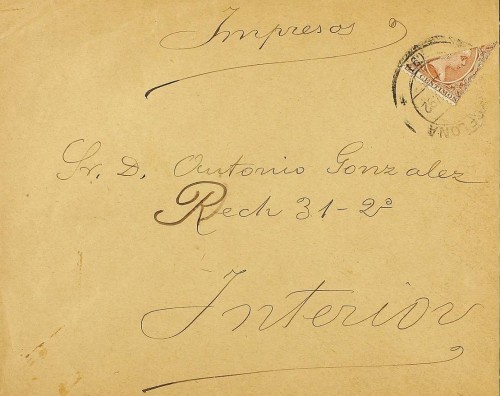 Impresos
CENTIMOS
ELONA
Sr. D. Antonio Gonzalez
Rech 31-2º
Interior